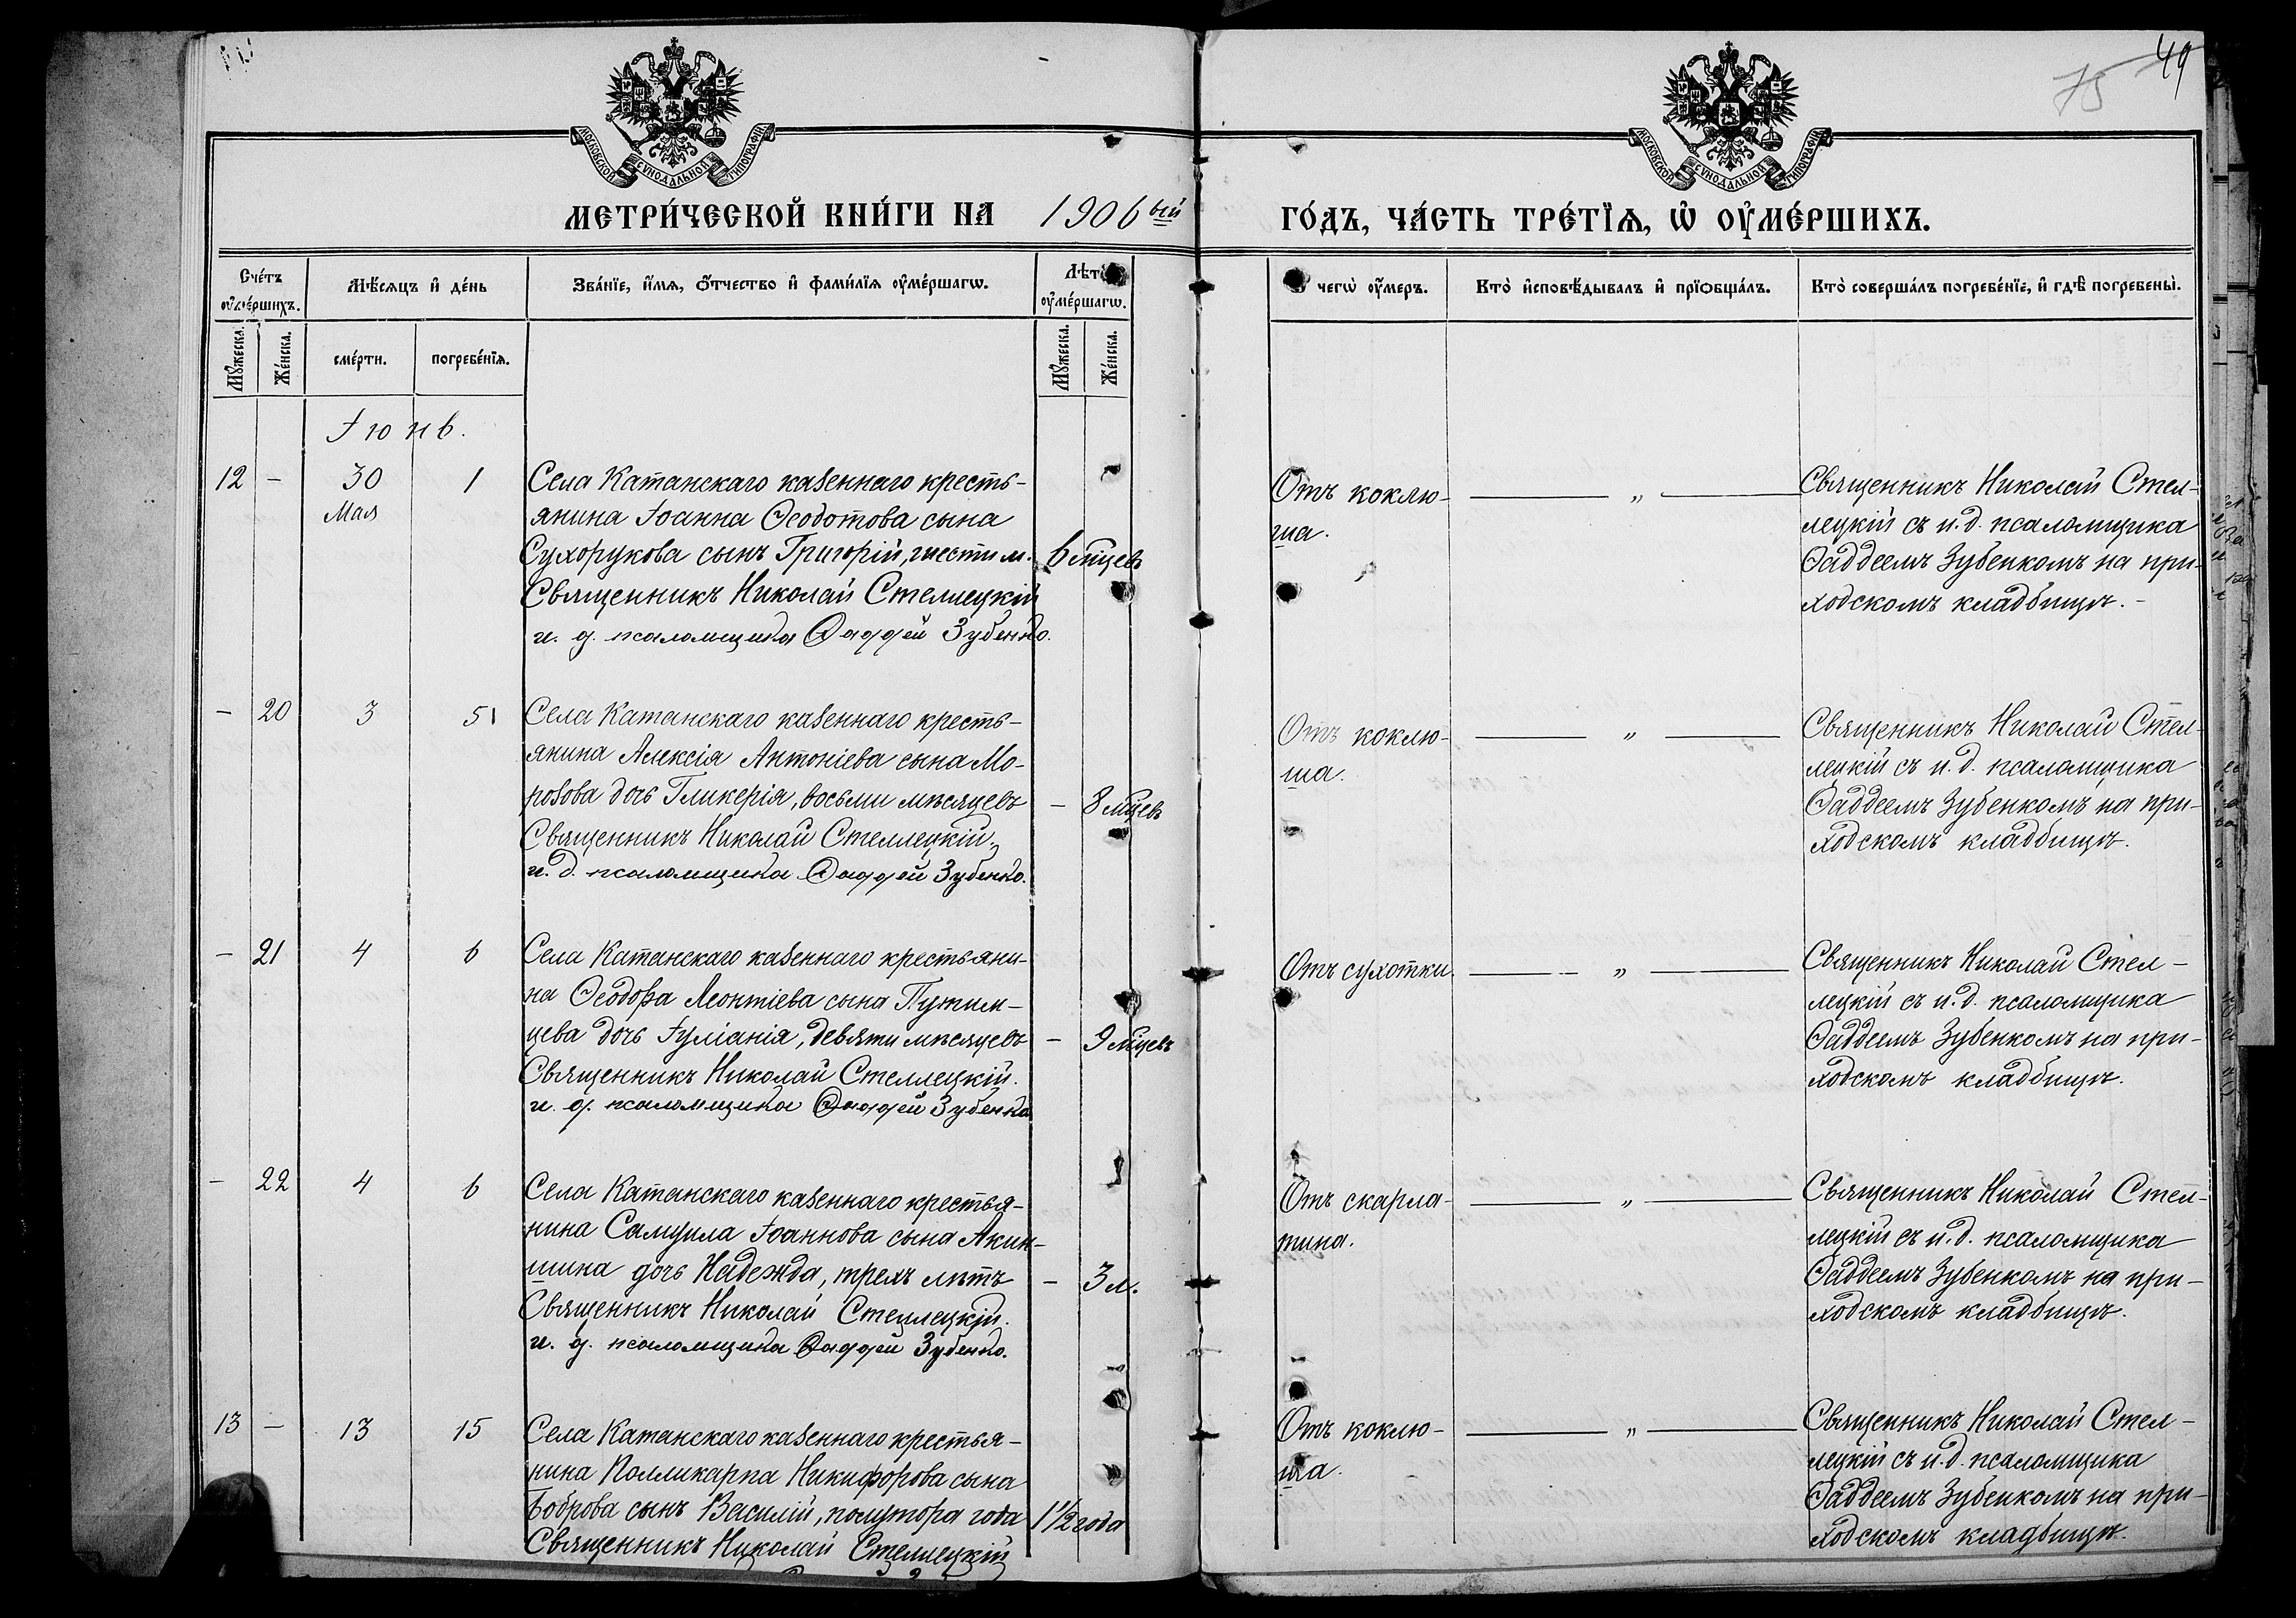 49
75
МОСКОВСКОЙ СѴНОДАЛЬНОЙ ТИПОГРАФІИ
МОСКОВСКОЙ СѴНОДАЛЬНОЙ ТИПОГРАФІИ
МЕТРИ́ЧЕСКОЙ КНИ́ГИ НА 1906ый ГО́ДЪ, ЧА́СТЬ ТРЕ́ТЇѦ, Ѡ҆ ОУ҆МЕ́РШИХЪ.
Сче́тъ оу҆ме́ршихъ.
Мѣ́сѧцъ и҆ де́нь
Зва́нїе, и҆́мѧ, ѻ҆́тчество и҆ фами́лїѧ оу҆ме́ршагѡ.
Лѣт оу҆ме́ршагѡ.
чегѡ̀ оу҆́меръ.
Кто̀ и҆сповѣ́дывалъ и҆ прїѻбща́лъ.
Кто̀ соверша́лъ погребе́нїе, и҆ гдѣ̀ погребены̀.
Мꙋ́жеска.
Же́нска.
сме́рти.
погребе́нїѧ.
Мꙋ́жеска.
Же́нска.
Іюнь.
12 - 30 1 Села Катанскаго казеннаго кресть-
Мая янина Іоанна Ѳеодотова сына
Сухорукова сынъ Григорій, шести м. 6 мцевъ
Священникъ Николай Стеллецкій
и. д. псаломщика Ѳаддей Зубенко.
Отъ коклю- — „ —
ша.
Священникъ Николай Стел-
лецкій съ и. д. псаломщика
Ѳаддеемъ Зубенкомъ на при-
ходскомъ кладбищѣ.-
- 20 3 5 Села Катанскаго казеннаго кресть-
янина Алексія Антоніева сына Мо-
розова дочь Гликерія, восьми мѣсяцевъ - 8 мцевъ
Священникъ Николай Стеллецкій.
и. д. псаломщика Ѳаддей Зубенко.
Отъ коклю- — „ —
ша.
Священникъ Николай Стел-
лецкій съ и. д. псаломщика
Ѳаддеемъ Зубенкомъ на при-
ходскомъ кладбищѣ.
- 21 4 6 Села Катанскаго казеннаго крестьяни-
на Ѳеодора Леонтіева сына Путим-
цева дочь Іуліанія, девяти мѣсяцевъ - 9 мцевъ
Священникъ Николай Стеллецкій.
и. д. псаломщика Ѳаддей Зубенко
Отъ сухотки. — „ —
Священникъ Николай Стел-
лецкій съ и. д. псаломщика
Ѳаддеемъ Зубенкомъ на при-
ходскомъ кладбищѣ.
- 22 4 6 Села Катанскаго казеннаго крестья-
нина Самуила Іоаннова сына Акин-
шина дочь Надежда, трехъ лѣтъ - 3 л.
Священникъ Николай Стеллецкій.
и. д. псаломщика Ѳаддей Зубенко.
Отъ скарла- — „ —
тина.
Священникъ Николай Стел-
лецкій съ и. д. псаломщика
Ѳаддеемъ Зубенкомъ на при-
ходскомъ кладбищѣ.
13 - 13 15 Села Катанскаго казеннаго крестья-
нина Полликарпа Никифорова сына
Боброва сынъ Василій, полутора года 1 1/2 года
Священникъ Николай Стеллецкій
Отъ коклю- — „ —
ша.
Священникъ Николай Стел-
лецкій съ и. д. псаломщика
Ѳаддеемъ Зубенкомъ на при-
ходскомъ кладбищѣ.